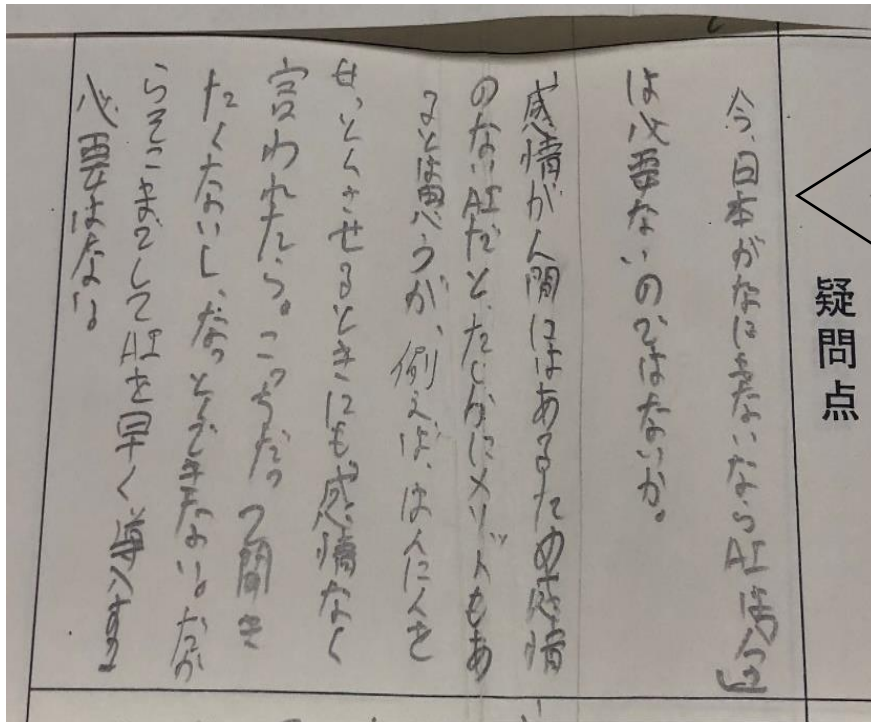 疑問点
今、日本がなにもないならAIは今
は必要ないのではないか。
感情が人間にはあるため感情
のないAIだと、たしかにメリットもあ
るとは思うが、例えば、はんにんを
せっとくさせるときにも、感情なく
言われたら。こっちだって聞き
たくないし、なっとくできない。だか
らそこまでしてAIを早く導入する
必要はない。